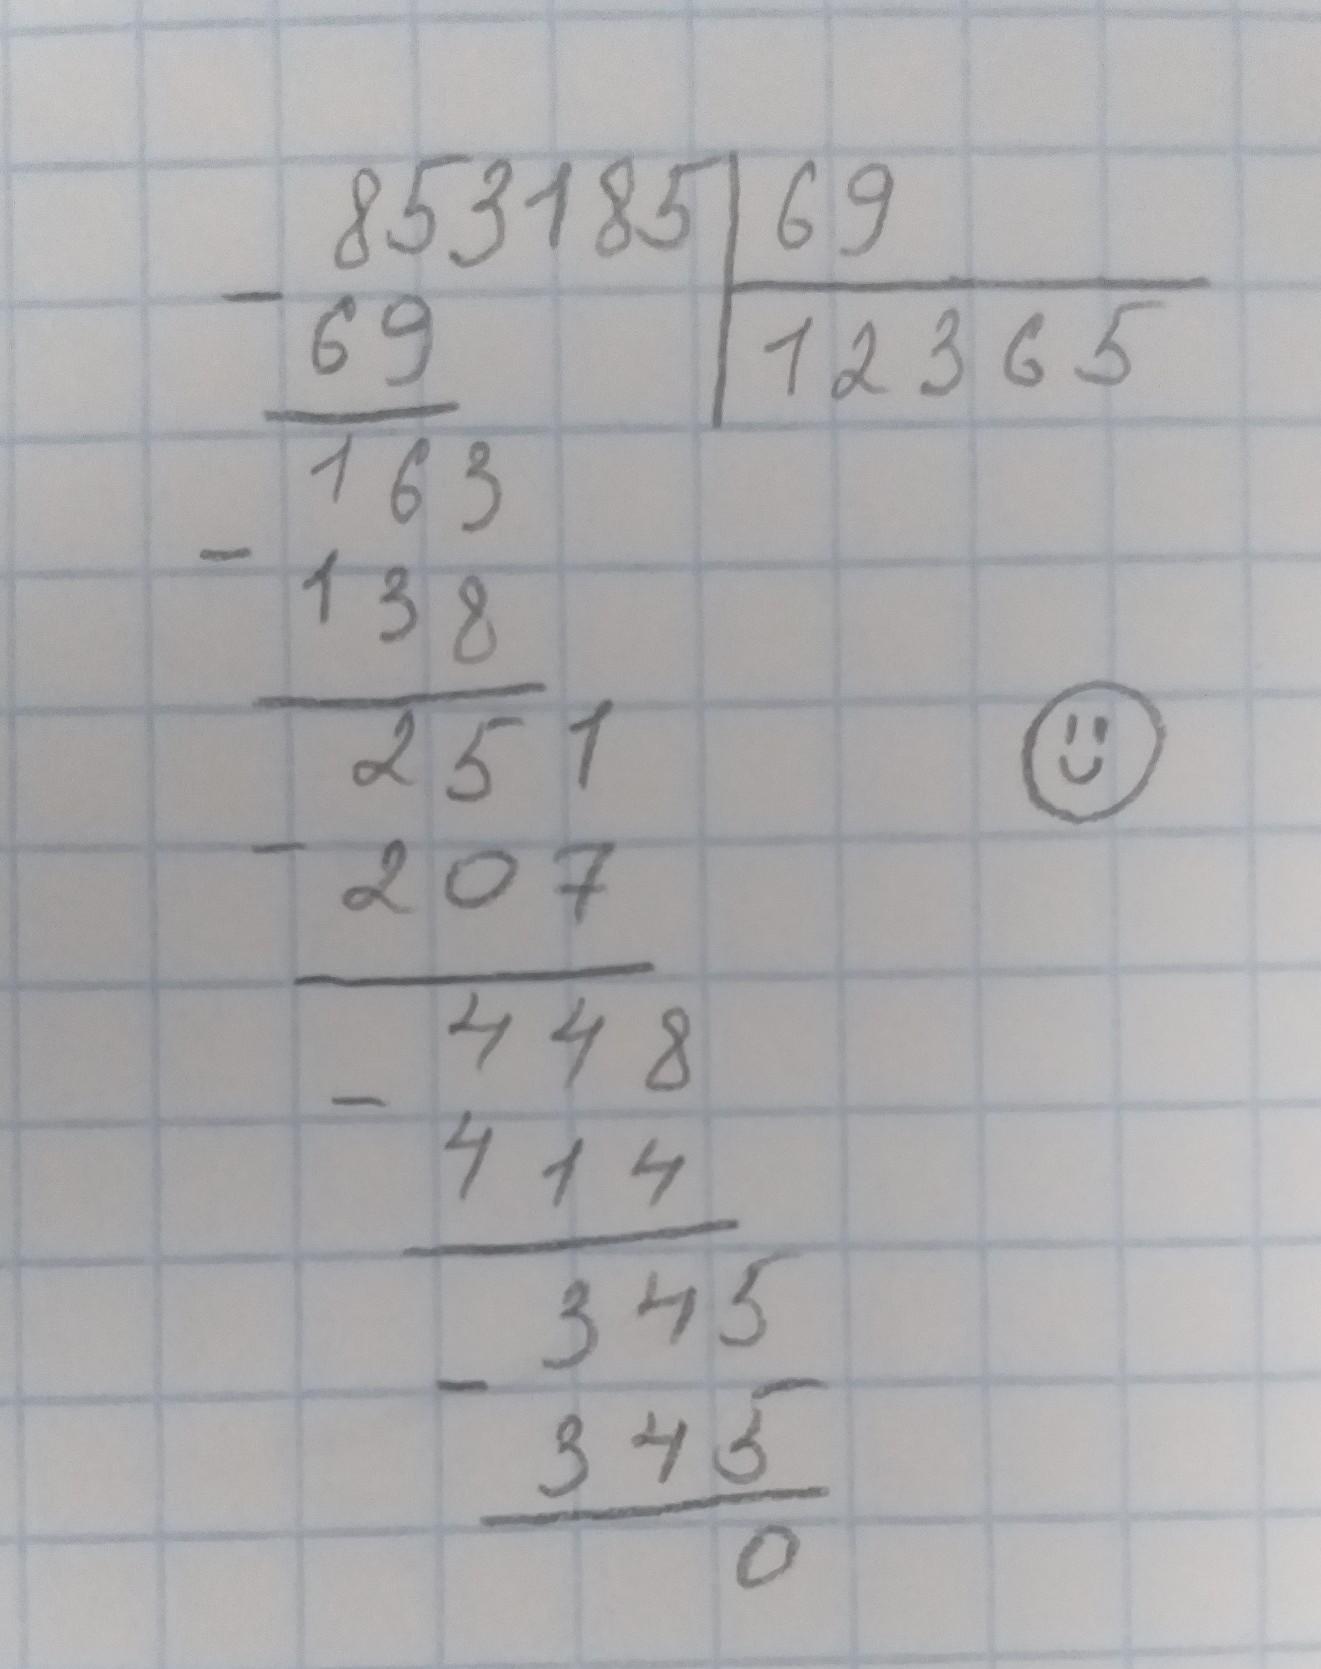 853185 69
- 69 12365
163
- 138
251
- 207
448
- 414
345
- 345
0